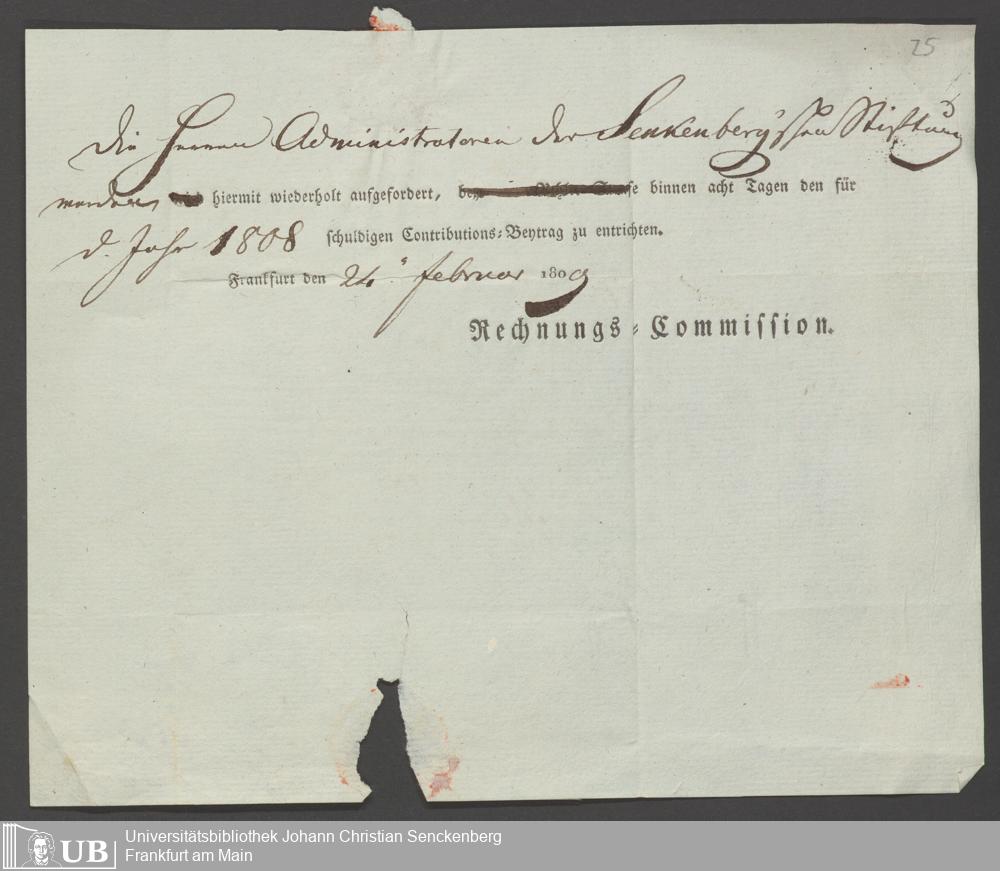 25
Die Herren Administratoren der Senkenberg'schen Stiftung
werden hiermit wiederholt aufgefordert, binnen acht Tagen den für
d. Jahr 1808 schuldigen Contributions-Beytrag zu entrichten.
Frankfurt den 24. februar 1809
Rechnungs-Commission.
UB
Universitätsbibliothek Johann Christian Senckenberg
Frankfurt am Main